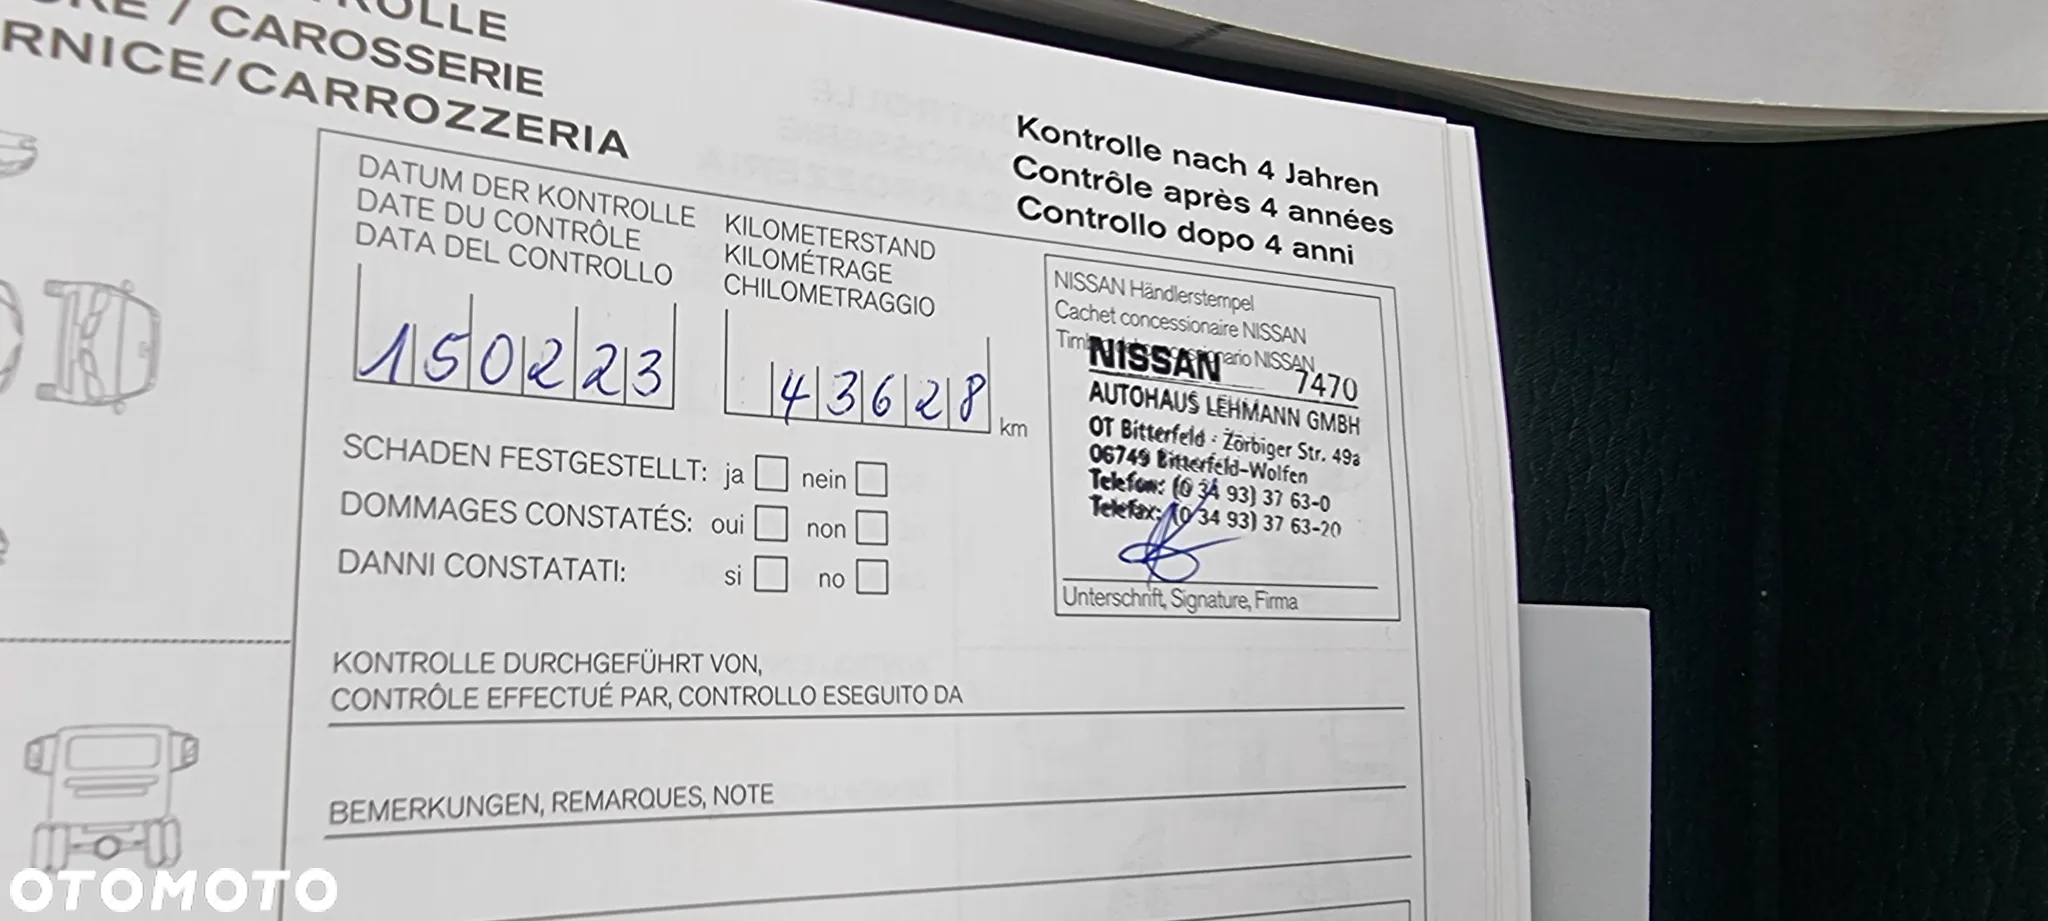 ROLLE
/ CAROSSERIE
RNICE/CARROZZERIA
Kontrolle nach 4 Jahren
Contrôle après 4 années
Controllo dopo 4 anni
DATUM DER KONTROLLE
DATE DU CONTRÔLE
DATA DEL CONTROLLO
150223
KILOMETERSTAND
KILOMÉTRAGE
CHILOMETRAGGIO
43628 km
NISSAN Händlerstempel
Cachet concessionaire NISSAN
NISSAN
NISSAN 7470
AUTOHAUS LEHMANN GMBH
OT Bitterfeld · Zörbiger Str. 49a
06749 Bitterfeld-Wolfen
Telefon: (0 34 93) 37 63-0
Telefax: (0 34 93) 37 63-20
Unterschrift, Signature, Firma
SCHADEN FESTGESTELLT: ja nein
DOMMAGES CONSTATÉS: oui non
DANNI CONSTATATI: si no
KONTROLLE DURCHGEFÜHRT VON,
CONTRÔLE EFFECTUÉ PAR, CONTROLLO ESEGUITO DA
BEMERKUNGEN, REMARQUES, NOTE
OTOMOTO